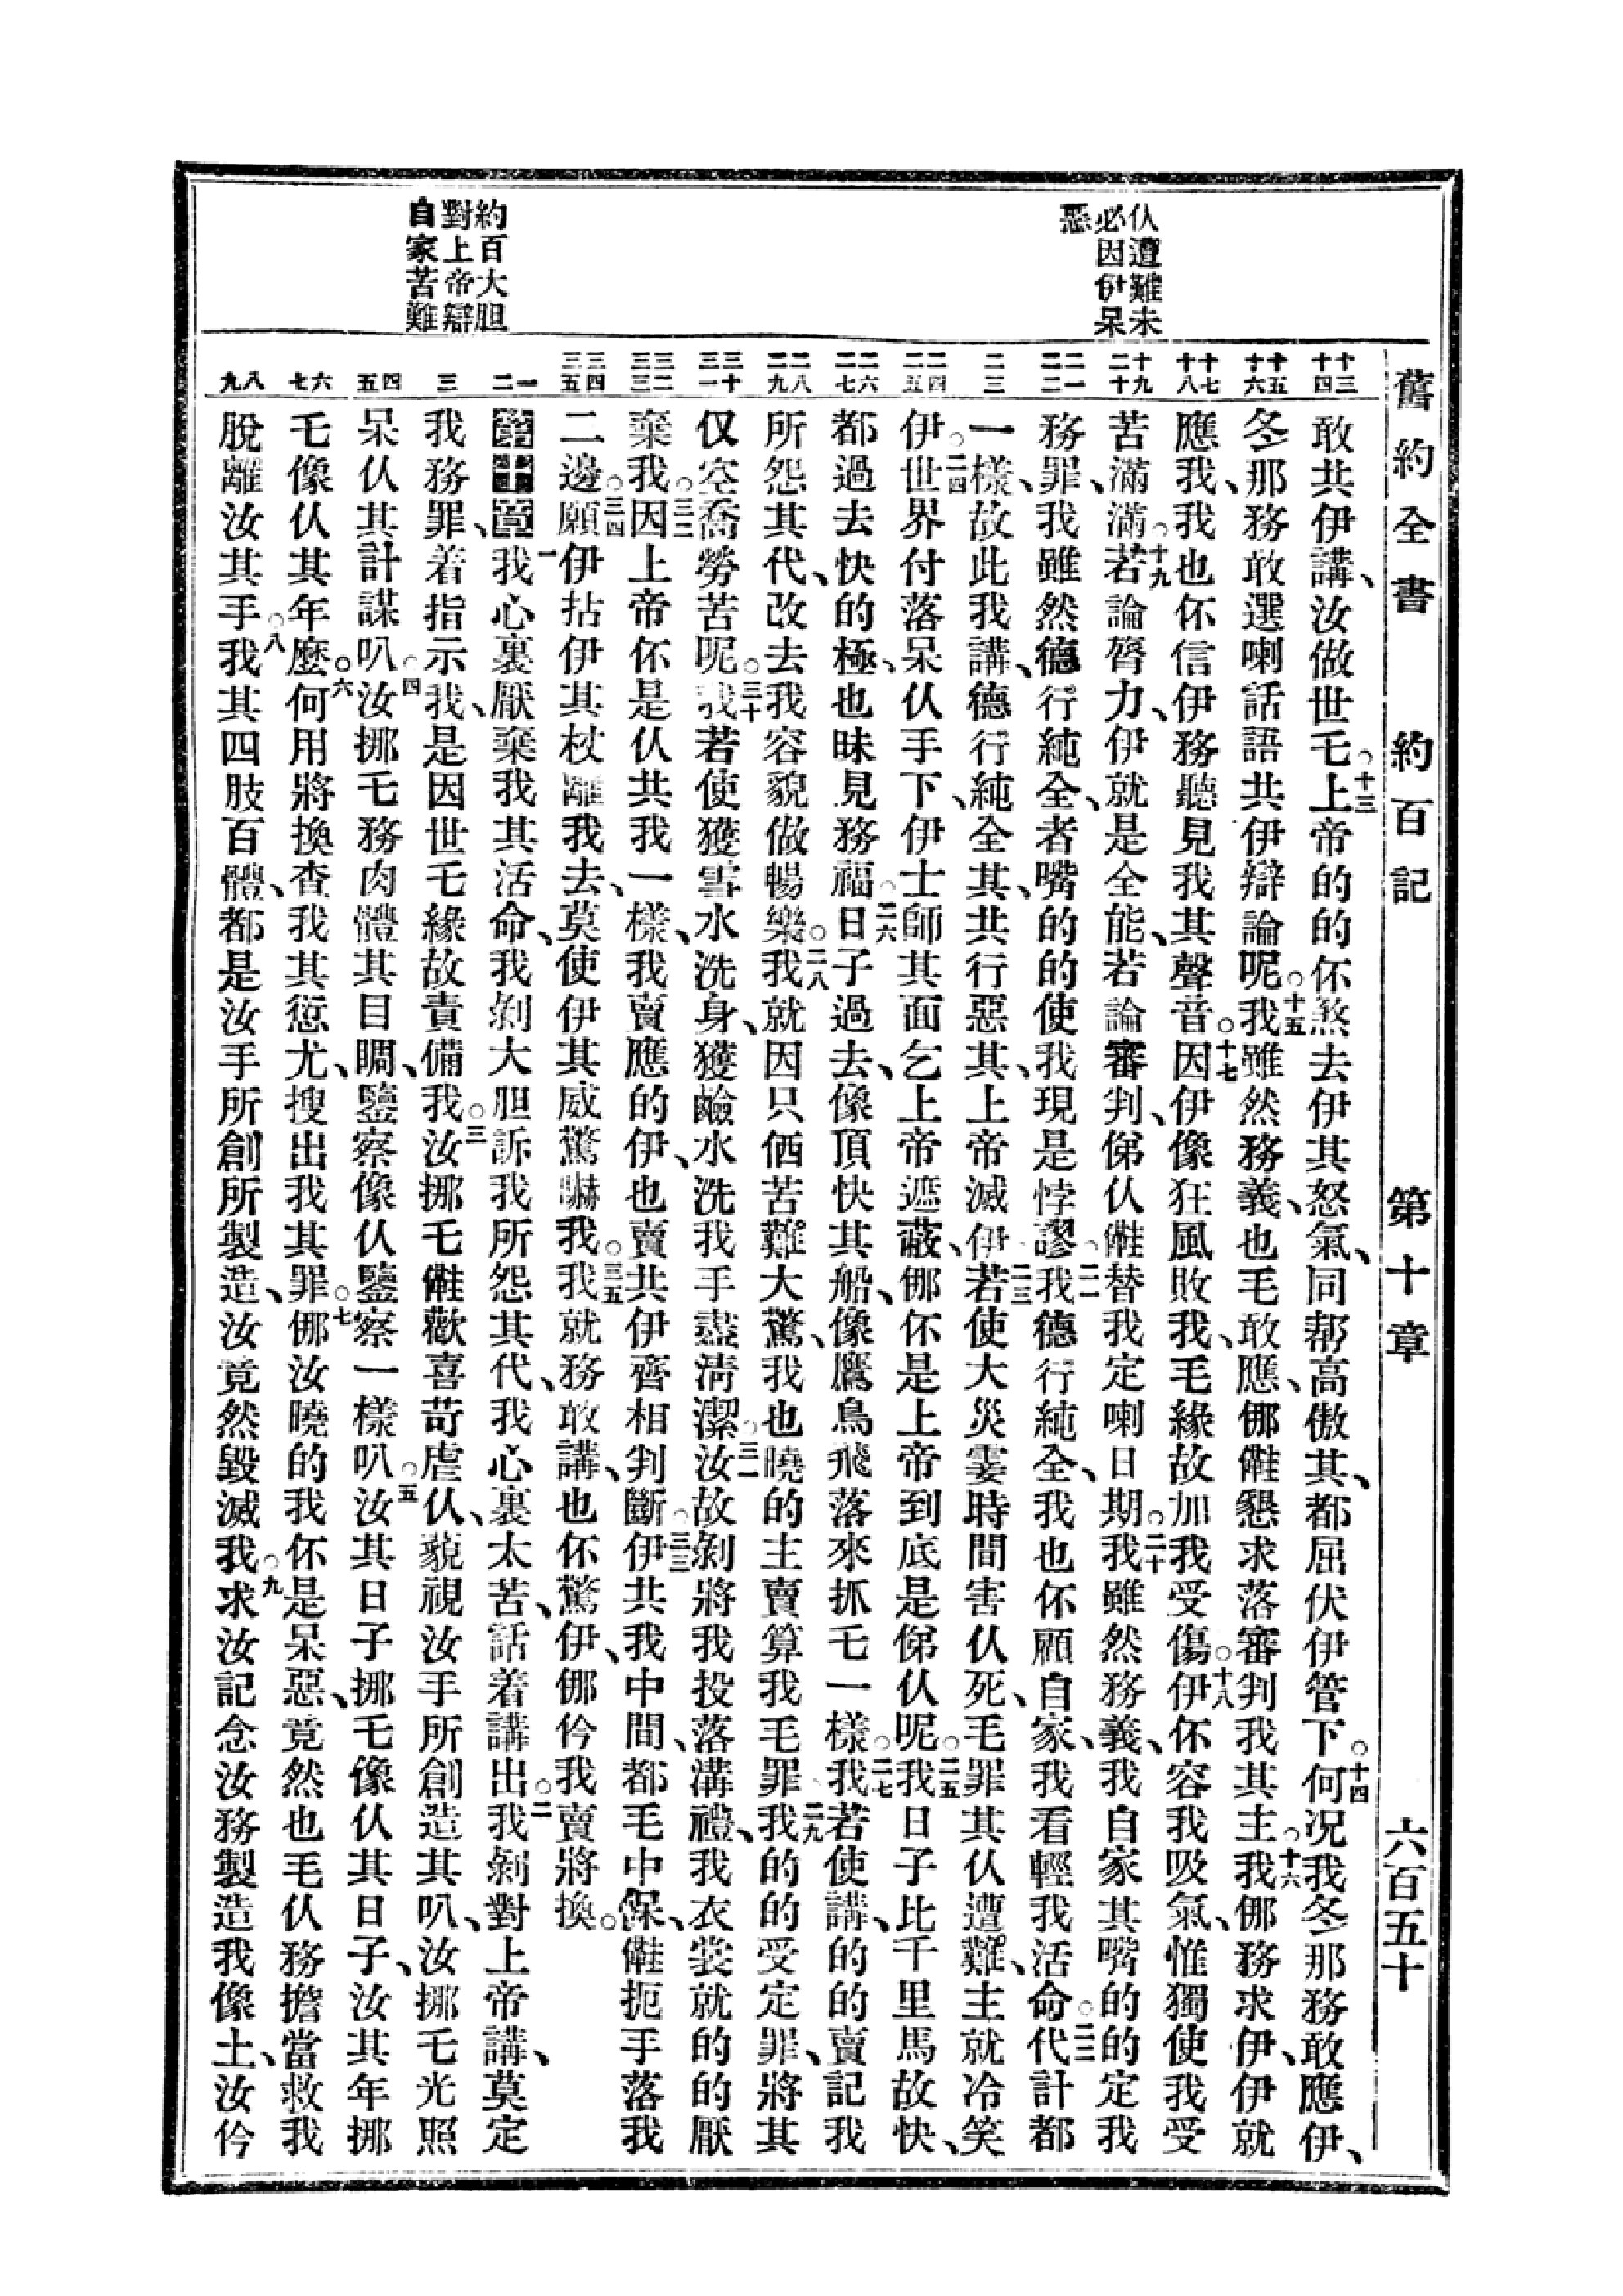 舊約全書 約百記 第十章 六百五十
仈遭難未
必因伊呆
惡
約百大胆
對上帝辯
自家苦難
十三 十四
十五 十六
十七 十八
十九 二十
二一 二二
二三
二四 二五
二六 二七
二八 二九
三十 三一
三二 三三
三四 三五
一 二
三
四 五
六 七
八 九
敢共伊講、汝做世乇。○十三上帝的的伓煞去伊其怒氣、同帮高傲其、都屈伏伊管下。○十四何况我冬那務敢應伊、
冬那務敢選喇話語共伊辯論呢。○十五我雖然務義、也毛敢應、倻儺懇求落審判我其主。○十六我倻務求伊、伊就
應我、我也伓信伊務聽見我其聲音。○十七因伊像狂風敗我、毛緣故加我受傷。○十八伊伓容我吸氣、惟獨使我受
苦滿滿。○十九若論膂力、伊就是全能、若論審判、俤仈儺替我定喇日期。○二十我雖然務義、我自家其嘴的的定我
務罪、我雖然德行純全、者嘴的的使我現是悖謬。○二一我德行純全、我也伓顧自家、我看輕我活命。○二二代計都
一樣、故此我講、德行純全其、共行惡其、上帝滅伊。○二三若使大災霎時間害仈死、毛罪其仈遭難、主就冷笑
伊。○二四世界付落呆仈手下、伊士師其面乞上帝遮蔽、倻伓是上帝到底是俤仈呢。○二五我日子比千里馬故快、
都過去快的極、也昧見務福。○二六日子過去、像頂快其船、像鷹鳥飛落來抓乇一樣。○二七我若使講、的的賣記我
所怨其代、改去我容貌做暢樂。○二八我就因只価苦難大驚、我也曉的主賣算我毛罪。○二九我的的受定罪、將其
仅空喬勞苦呢。○三十我若使獲雪水洗身、獲鹼水洗我手盡淸潔。○三一汝故剝將我投落溝禮、我衣裳就的的厭
棄我。○三二因上帝伓是仈共我一樣、我賣應的伊、也賣共伊齊相判斷。○三三伊共我中間、都毛中保、儺扼手落我
二邊。○三四願伊拈伊其杖離我去、莫使伊其威驚嚇我。○三五我就務敢講、也伓驚伊、倻仱我賣將換。
第十章 一我心裏厭棄我其活命、我剝大胆訴我所怨其代、我心裏太苦、話着講出。○二我剝對上帝講、莫定
我務罪、着指示我、是因世乇緣故責備我。○三汝挪乇儺歡喜苛虐仈、藐視汝手所創造其叭、汝挪乇光照
呆仈其計謀叭。○四汝挪乇務肉體其目睭、鑒察像仈鑒察一樣叭。○五汝其日子挪乇像仈其日子、汝其年挪
乇像仈其年麽。○六何用將換查我其愆尤、搜出我其罪。○七倻汝曉的我伓是呆惡、竟然也毛仈務擔當救我
脫離汝其手。○八我其四肢百體、都是汝手所創所製造、汝竟然毀滅我。○九求汝記念汝務製造我像土、汝仱